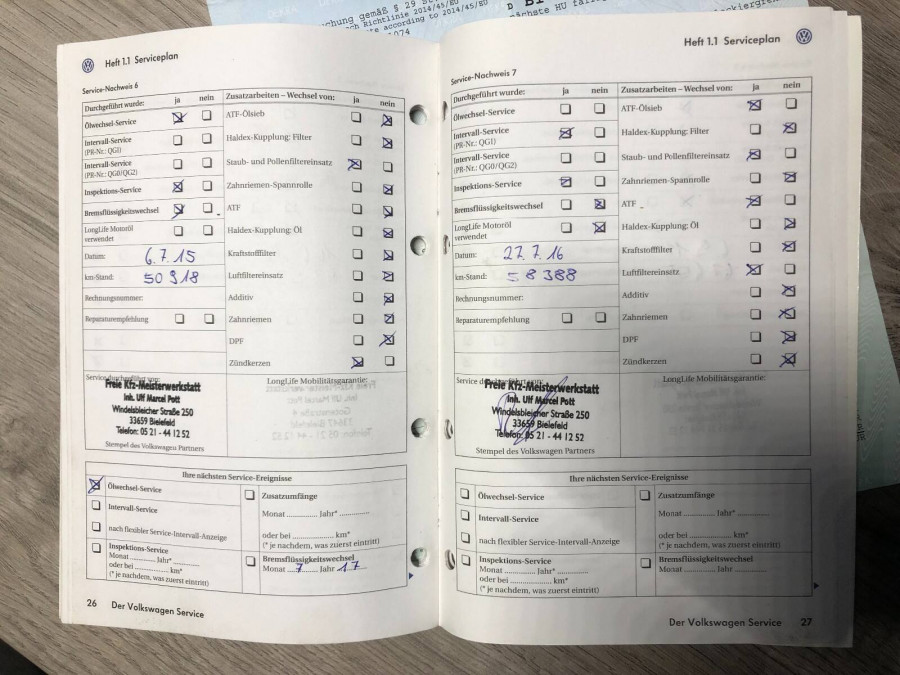 uchung gemäß § 29 St
ch Richtlinie 2014/45/EU
te according to 2014/45/EU
074
Heft 1.1 Serviceplan
Service-Nachweis 6
Durchgeführt wurde: ja nein
Ölwechsel-Service
Intervall-Service
(PR-Nr.: QG1)
Intervall-Service
(PR-Nr.: QG0/QG2)
Inspektions-Service
Bremsflüssigkeitswechsel
LongLife Motoröl
verwendet
Datum: 6.7.15
km-Stand: 50 918
Rechnungsnummer:
Reparaturempfehlung
Zusatzarbeiten – Wechsel von: ja nein
ATF-Ölsieb
Haldex-Kupplung: Filter
Staub- und Pollenfiltereinsatz
Zahnriemen-Spannrolle
ATF
Haldex-Kupplung: Öl
Kraftstofffilter
Luftfiltereinsatz
Additiv
Zahnriemen
DPF
Zündkerzen
Service durchgeführt von:
Freie Kfz-Meisterwerkstatt
Inh. Ulf Marcel Pott
Windelsbleicher Straße 250
33659 Bielefeld
Telefon: 05 21 - 44 12 52
Stempel des Volkswagen Partners
LongLife Mobilitätsgarantie:
Ihre nächsten Service-Ereignisse
Ölwechsel-Service
Intervall-Service
nach flexibler Service-Intervall-Anzeige
Inspektions-Service
Monat ............ Jahr* ............
oder bei ............ km*
(* je nachdem, was zuerst eintritt)
Zusatzumfänge
Monat ............ Jahr* ............
oder bei ............ km*
(* je nachdem, was zuerst eintritt)
Bremsflüssigkeitswechsel
Monat 7 Jahr 17
26 Der Volkswagen Service
Heft 1.1 Serviceplan
Service-Nachweis 7
Durchgeführt wurde: ja nein
Ölwechsel-Service
Intervall-Service
(PR-Nr.: QG1)
Intervall-Service
(PR-Nr.: QG0/QG2)
Inspektions-Service
Bremsflüssigkeitswechsel
LongLife Motoröl
verwendet
Datum: 27.7.16
km-Stand: 58 388
Rechnungsnummer:
Reparaturempfehlung
Zusatzarbeiten – Wechsel von: ja nein
ATF-Ölsieb
Haldex-Kupplung: Filter
Staub- und Pollenfiltereinsatz
Zahnriemen-Spannrolle
ATF
Haldex-Kupplung: Öl
Kraftstofffilter
Luftfiltereinsatz
Additiv
Zahnriemen
DPF
Zündkerzen
Service
Freie Kfz-Meisterwerkstatt
Inh. Ulf Marcel Pott
Windelsbleicher Straße 250
33659 Bielefeld
Telefon: 05 21 - 44 12 52
Stempel des Volkswagen Partners
LongLife Mobilitätsgarantie:
Ihre nächsten Service-Ereignisse
Ölwechsel-Service
Intervall-Service
nach flexibler Service-Intervall-Anzeige
Inspektions-Service
Monat ............ Jahr* ............
oder bei ............ km*
(* je nachdem, was zuerst eintritt)
Zusatzumfänge
Monat ............ Jahr* ............
oder bei ............ km*
(* je nachdem, was zuerst eintritt)
Bremsflüssigkeitswechsel
Monat ............ Jahr ............
Der Volkswagen Service 27